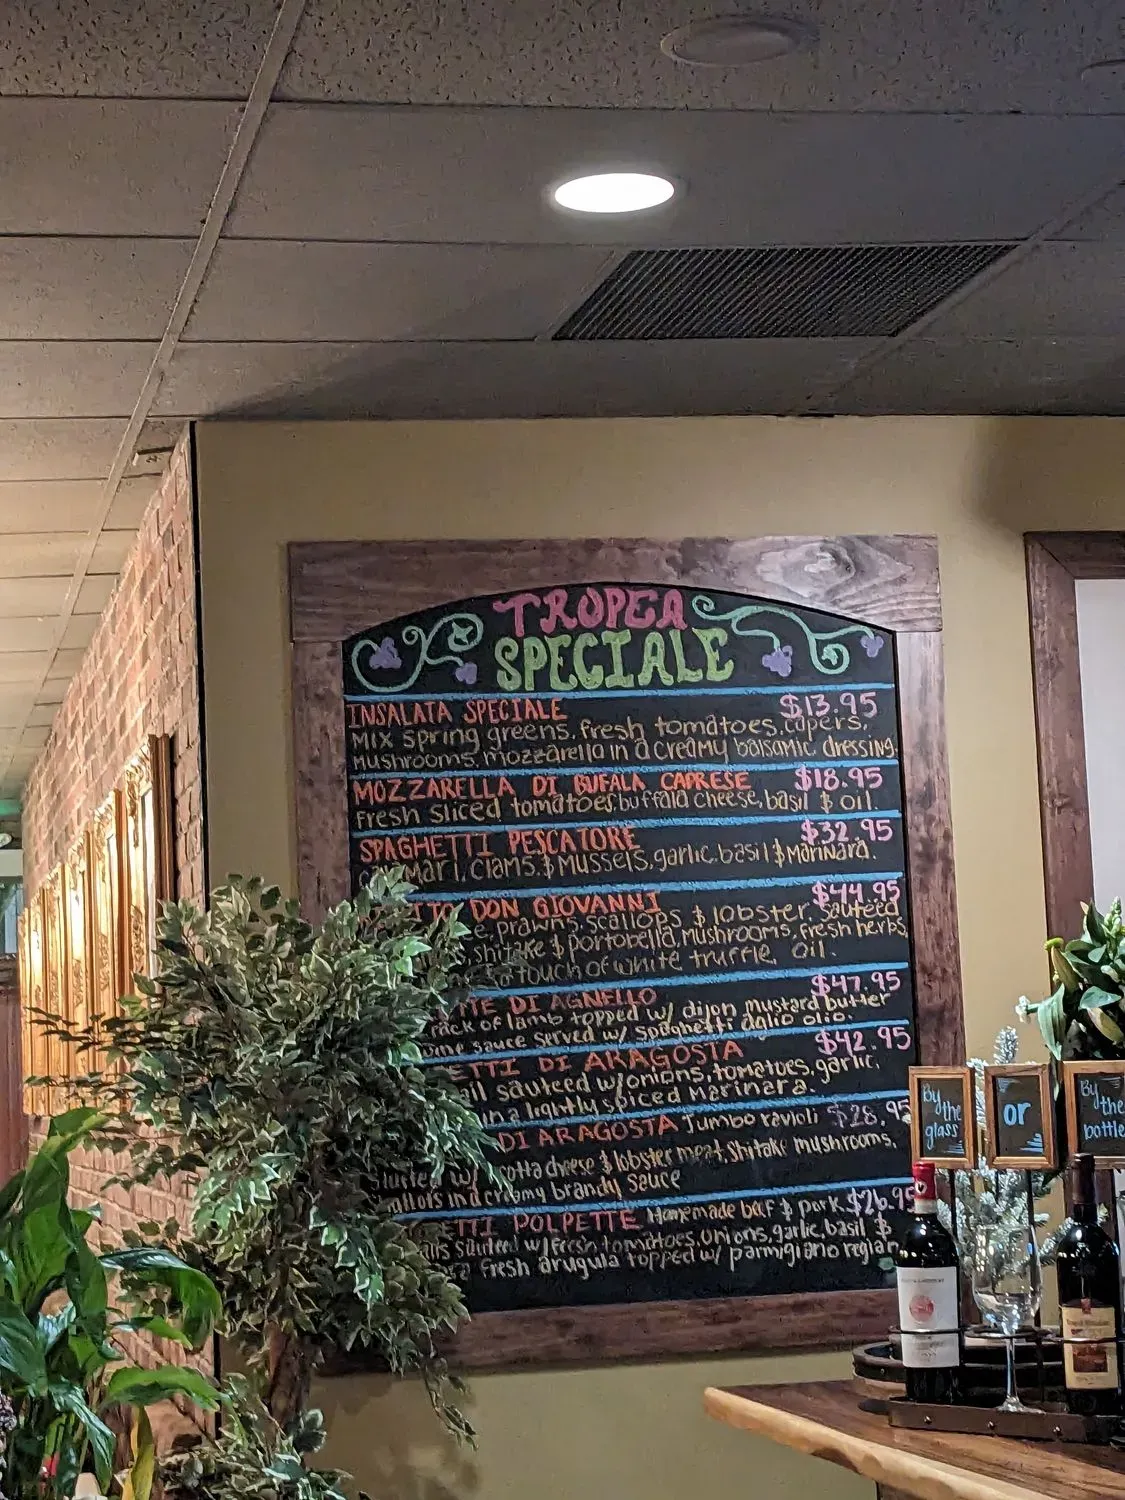 TROPEA
SPECIALE
INSALATA SPECIALE $13.95
MIX spring greens, fresh tomatoes, capers,
mushrooms, mozzarella in a creamy balsamic dressing
MOZZARELLA DI BUFALA CAPRESE $18.95
Fresh sliced tomatoes, buffala cheese, basil & oil.
SPAGHETTI PESCATORE $32.95
mari, clams & mussels, garlic, basil & marinara.
DON GIOVANNI $44.95
prawns, scallops & lobster, sauteed
shitake & portobella, mushrooms, fresh herbs,
a touch of white truffle oil.
DI AGNELLO $47.95
rack of lamb topped w/ dijon mustard butter
sauce served w/ spaghetti aglio olio.
DI ARAGOSTA $42.95
sauteed w/onions, tomatoes, garlic,
in a lightly spiced marinara.
DI ARAGOSTA Jumbo ravioli $28.95
w/ cheese & lobster meat, Shitake mushrooms,
in a creamy brandy sauce
POLPETTE Homemade beef & pork $26.95
sauteed w/fresh tomatoes, onions, garlic, basil &
fresh arugula topped w/ parmigiano regian
By the
glass
or
By
the
bottle